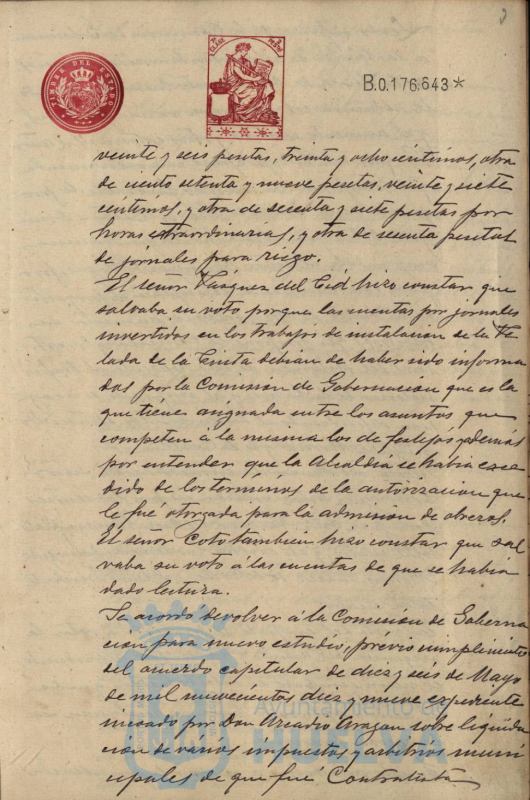 TIMBRE DEL ESTADO
B.0.176.643*
veinte y seis pesetas, treinta y ocho centimos, otra
de ciento setenta y nueve pesetas, veinte y siete
centimos, y otra de secenta y siete pesetas por
horas extraordinarias, y otra de secenta pesetas
de jornales para riego.
El señor Vásquez del Cid hizo constar que
salvaba su voto porque las cuentas por jornales
invertidos en los trabajos de instalacion de la Ve
lada de la Cinta debian de haber sido informa
das por la Comisión de Gobernacion que es la
que tiene asignada entre los asuntos que
competen á la misma los de festejos y demás
por entender que la Alcaldia se habia exce
dido de los terminos de la autorizacion que
le fué otorgada para la admision de obreros.
El señor Coto tambien hizo constar que sal
vaba su voto á las cuentas de que se habia
dado lectura.
Se acordó devolver á la Comision de Goberna
cion para nuevo estudio, prévio cumplimiento
del acuerdo capitular de diez y seis de Mayo
de mil nuevecientos diez y nueve expediente
incoado por Don Arcadio Aragon sobre liquida
cion de varios impuestos y arbitrios muni
cipales de que fué Contratista
Ayuntamiento de
HUELVA